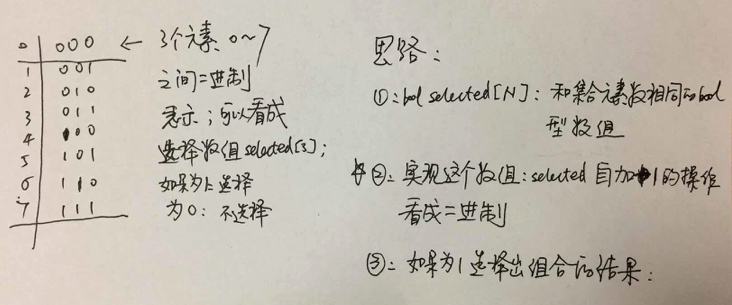 0 000 ← 3个元素 0~7
1 001
2 010
3 011
4 100
5 101
6 110
7 111
之间二进制
表示；可以看成
选择数组selected[3]；
如果为1：选择
为0：不选择
思路：
①：bool selected[N]：和集合元素数相同的bool
型数组
②：实现这个数组：selected 自加1的操作
看成二进制
③：如果为1选择出组合的结果：